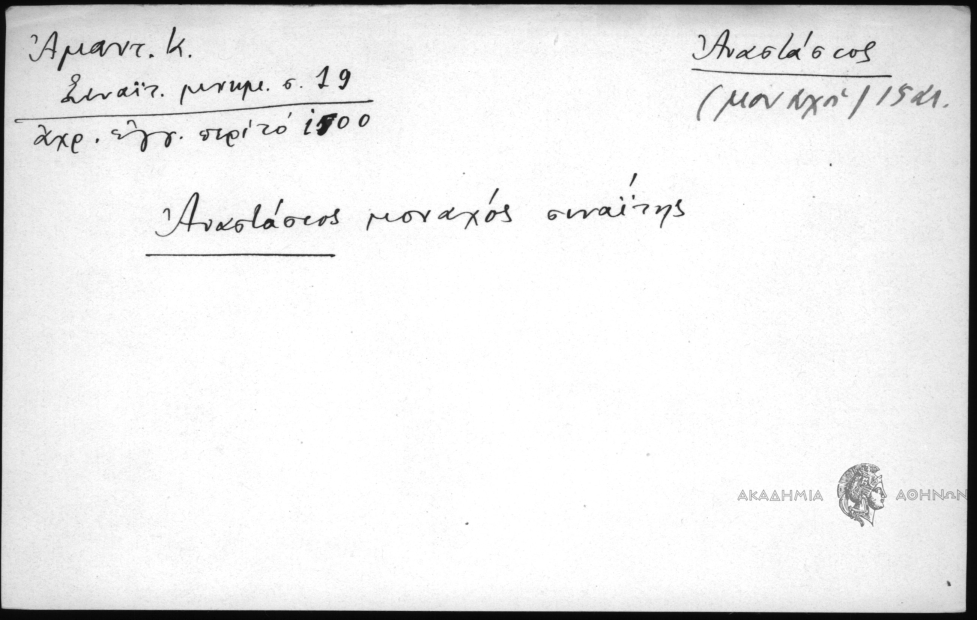 Ἀμαντ. Κ.
Σιναϊτ. μνημ. σ. 19
ἀχρ. ἔγγ. περὶ τό 1500
Ἀναστάσιος
(μοναχό) 15 αι.
Ἀναστάσιος μοναχός σιναΐτης
ΑΚΑΔΗΜΙΑ ΑΘΗΝΩΝ